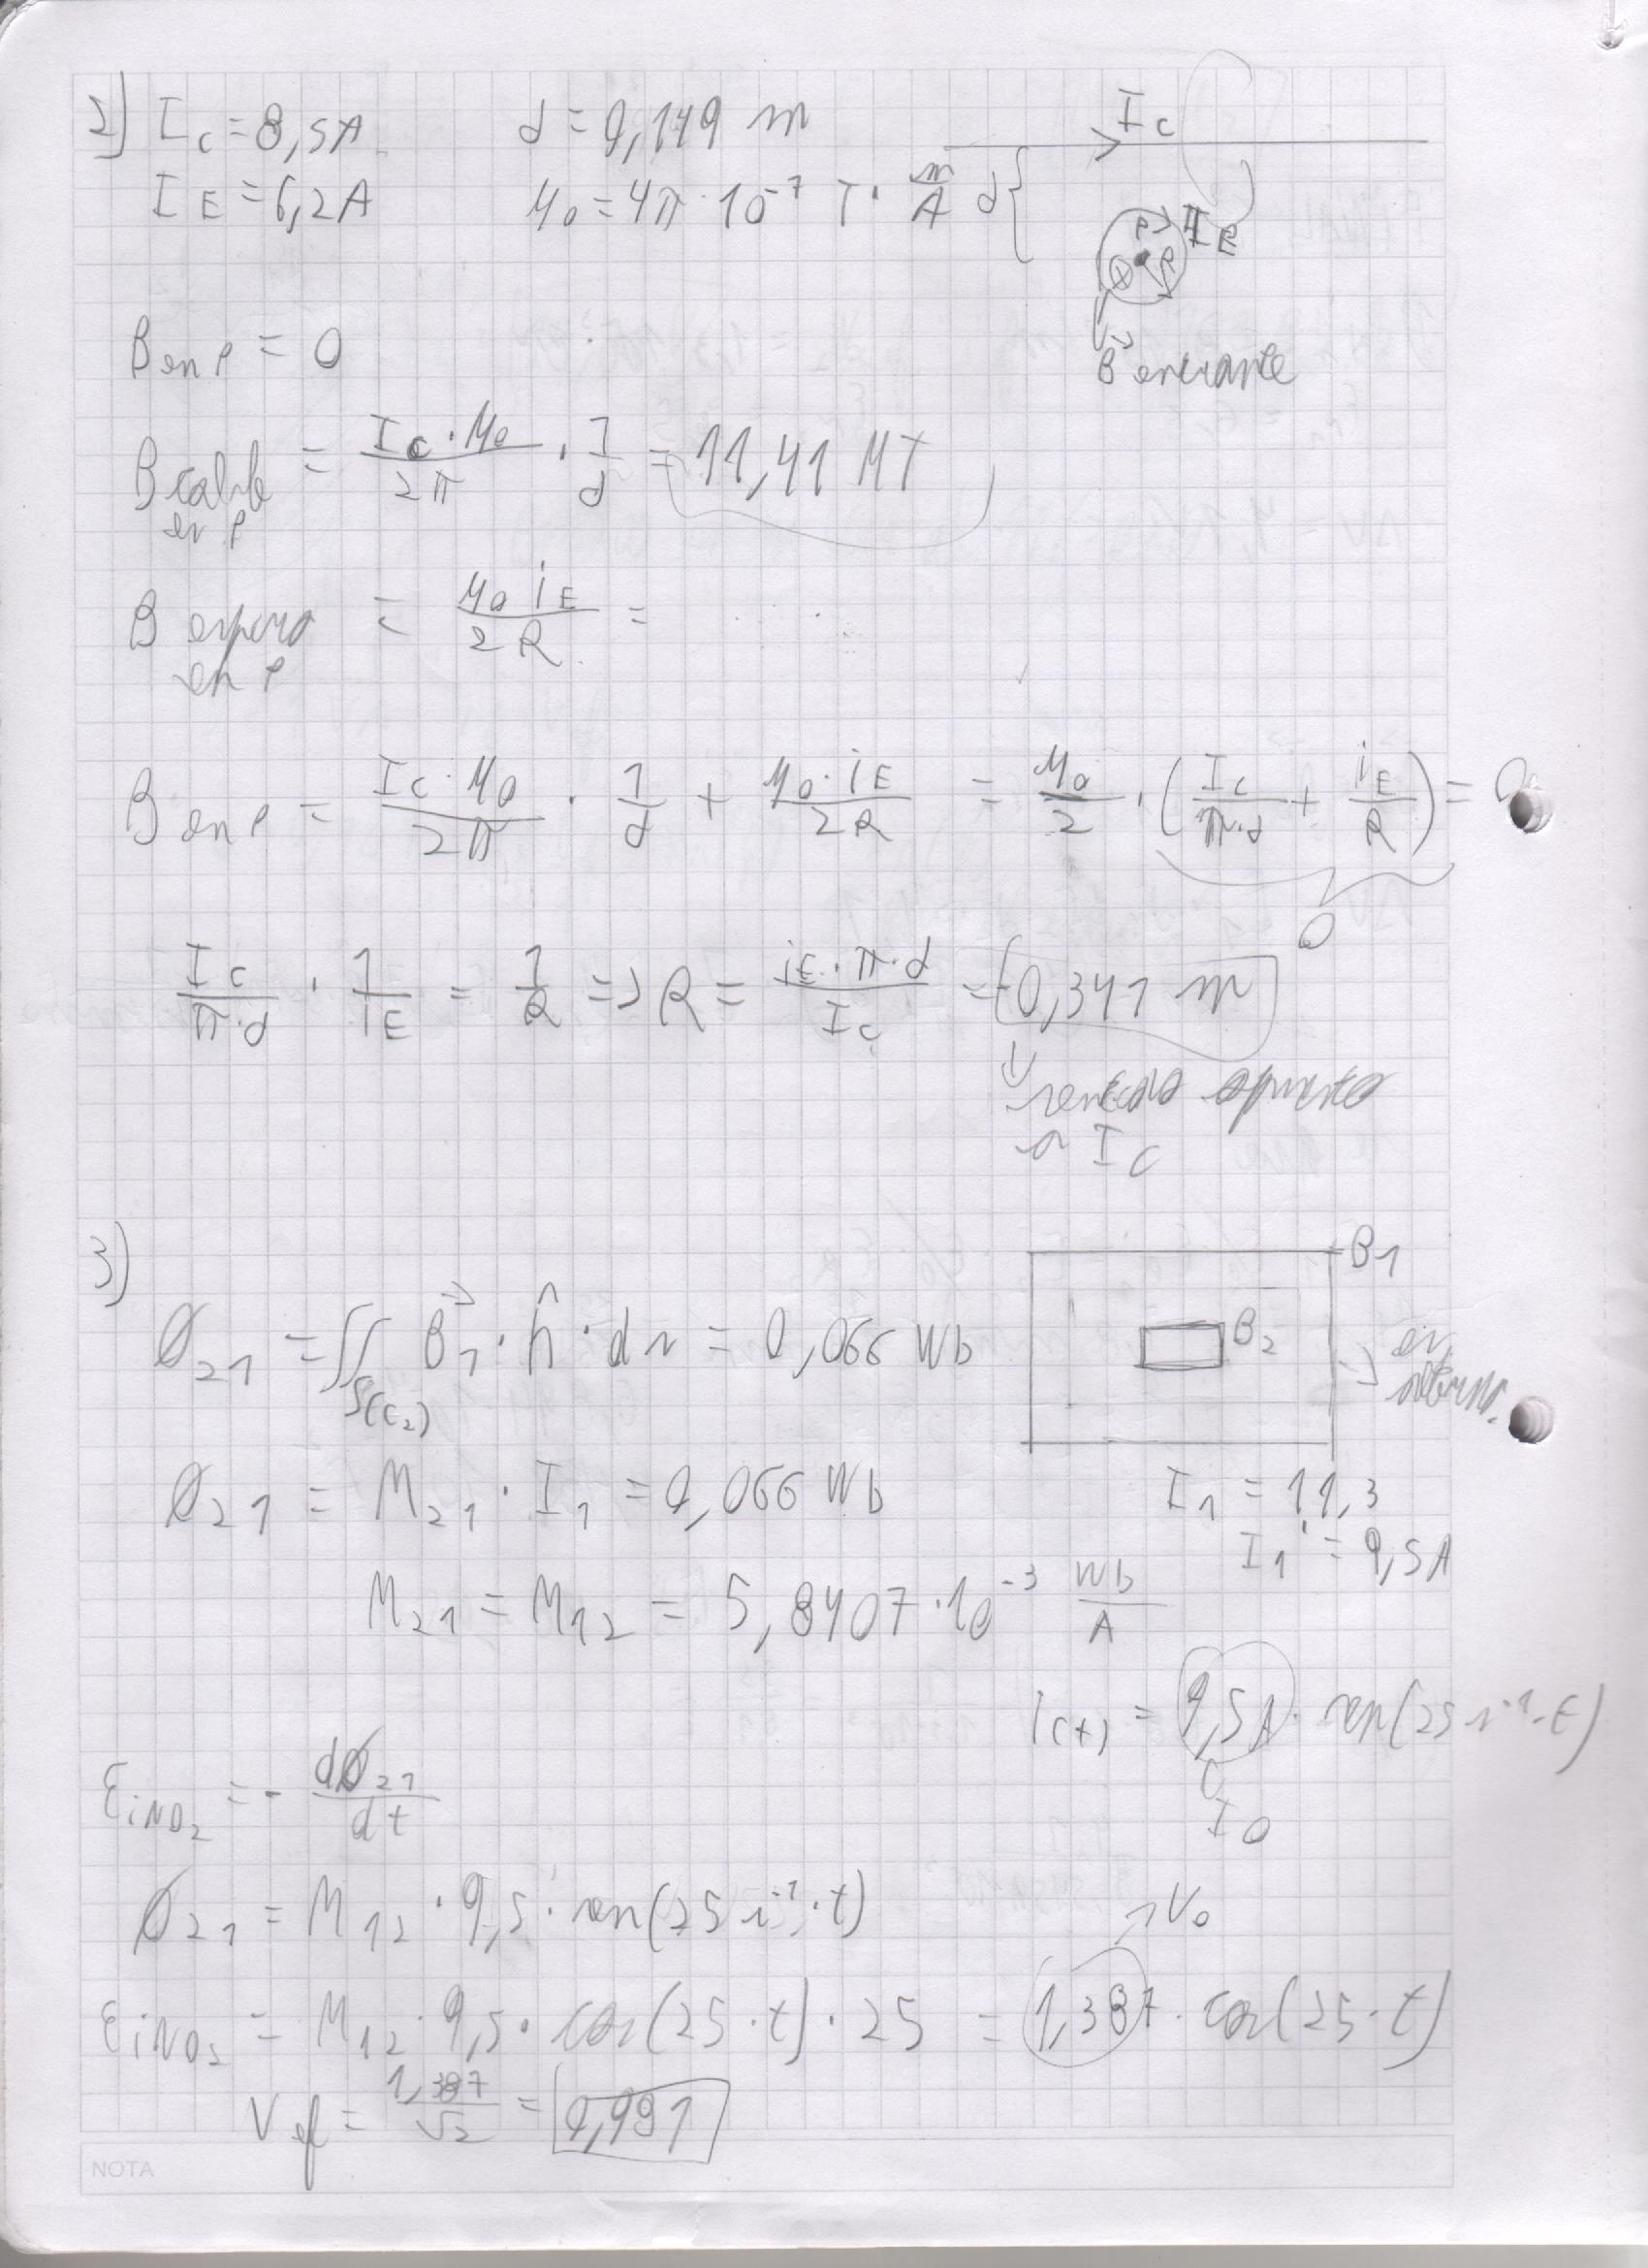 2) I_C = 8,5A    d = 0,149 m    I_C
I_E = 6,2A    μ_0 = 4π·10^-7 T·m/A    d {    P    I_E
R
B en P = 0    B entrante
B cable en P = (I_C·μ_0)/(2π) · 1/d = 11,41 μT
B espira en P = (μ_0 i_E)/(2R) =
B en P = (I_C·μ_0)/(2π) · 1/d + (μ_0·i_E)/(2R) = μ_0/2 · (I_C/(π·d) + i_E/R) = 0
0
I_C/(π·d) · 1/I_E = 1/R => R = (i_E·π·d)/I_C = 0,341 m
sentido opuesto
a I_C
3)    B1
Ø_21 = ∬_S(C_2) B_1 · n̂ · ds = 0,066 Wb    B_2
Ø_21 = M_21 · I_1 = 0,066 Wb    I_1 = 11,3
I_1' = 9,5A
M_21 = M_12 = 5,8407·10^-3 Wb/A
i(t) = 9,5A · sen(25 s^-1·t)
I_0
ε_IND_2 = - dØ_21/dt
Ø_21 = M_12 · 9,5 · sen(25 s^-1·t)    V_0
ε_IND_2 = M_12 · 9,5 · cos(25·t) · 25 = 1,387 · cos(25·t)
V_ef = 1,387/√2 = 0,981
NOTA